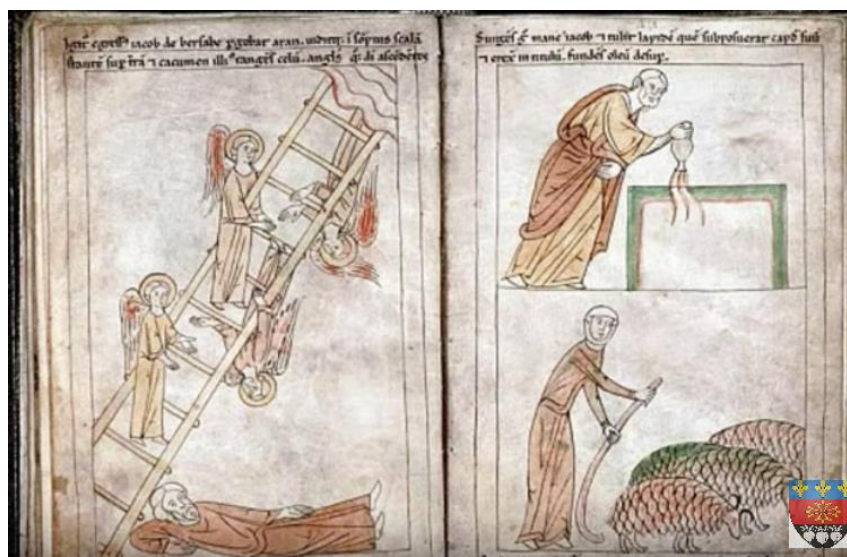 Igit egress iacob de bersabe pgebat aran. uiditq; i sopnis scalā
stante sup trā ⁊ cacumen illi tangēs celū. anglos q; di ascēdētes
Surgēs g mane iacob ⁊ tulit lapidē quē subposuerat capiti suo
⁊ erex in titulū. fundēs oleū desup.